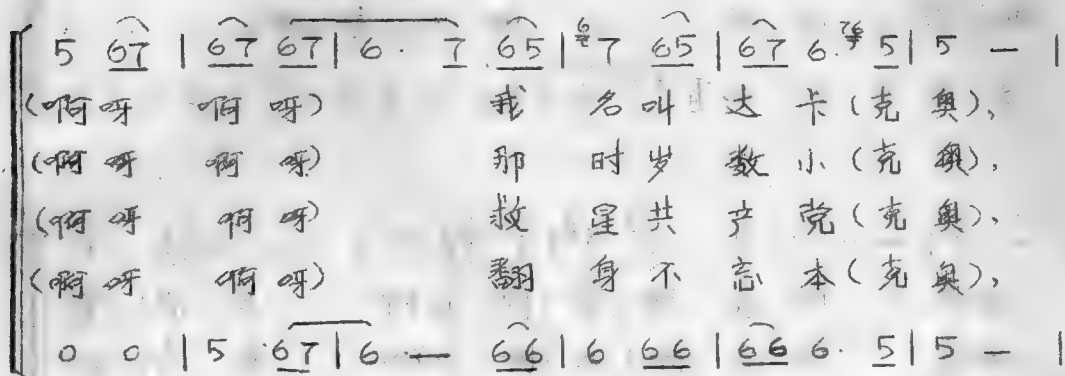 5 67 | 67 67 | 6 · 7 65 | 7 65 | 67 6 · 5 | 5 — |
(啊呀 啊呀) 我 名叫 达卡(克奥),
(啊呀 啊呀) 那 时岁 数小(克奥),
(啊呀 啊呀) 救 星共 产党(克奥),
(啊呀 啊呀) 翻 身不 忘本(克奥),
0 0 | 5 · 67 | 6 — 66 | 6 66 | 66 6 · 5 | 5 — |